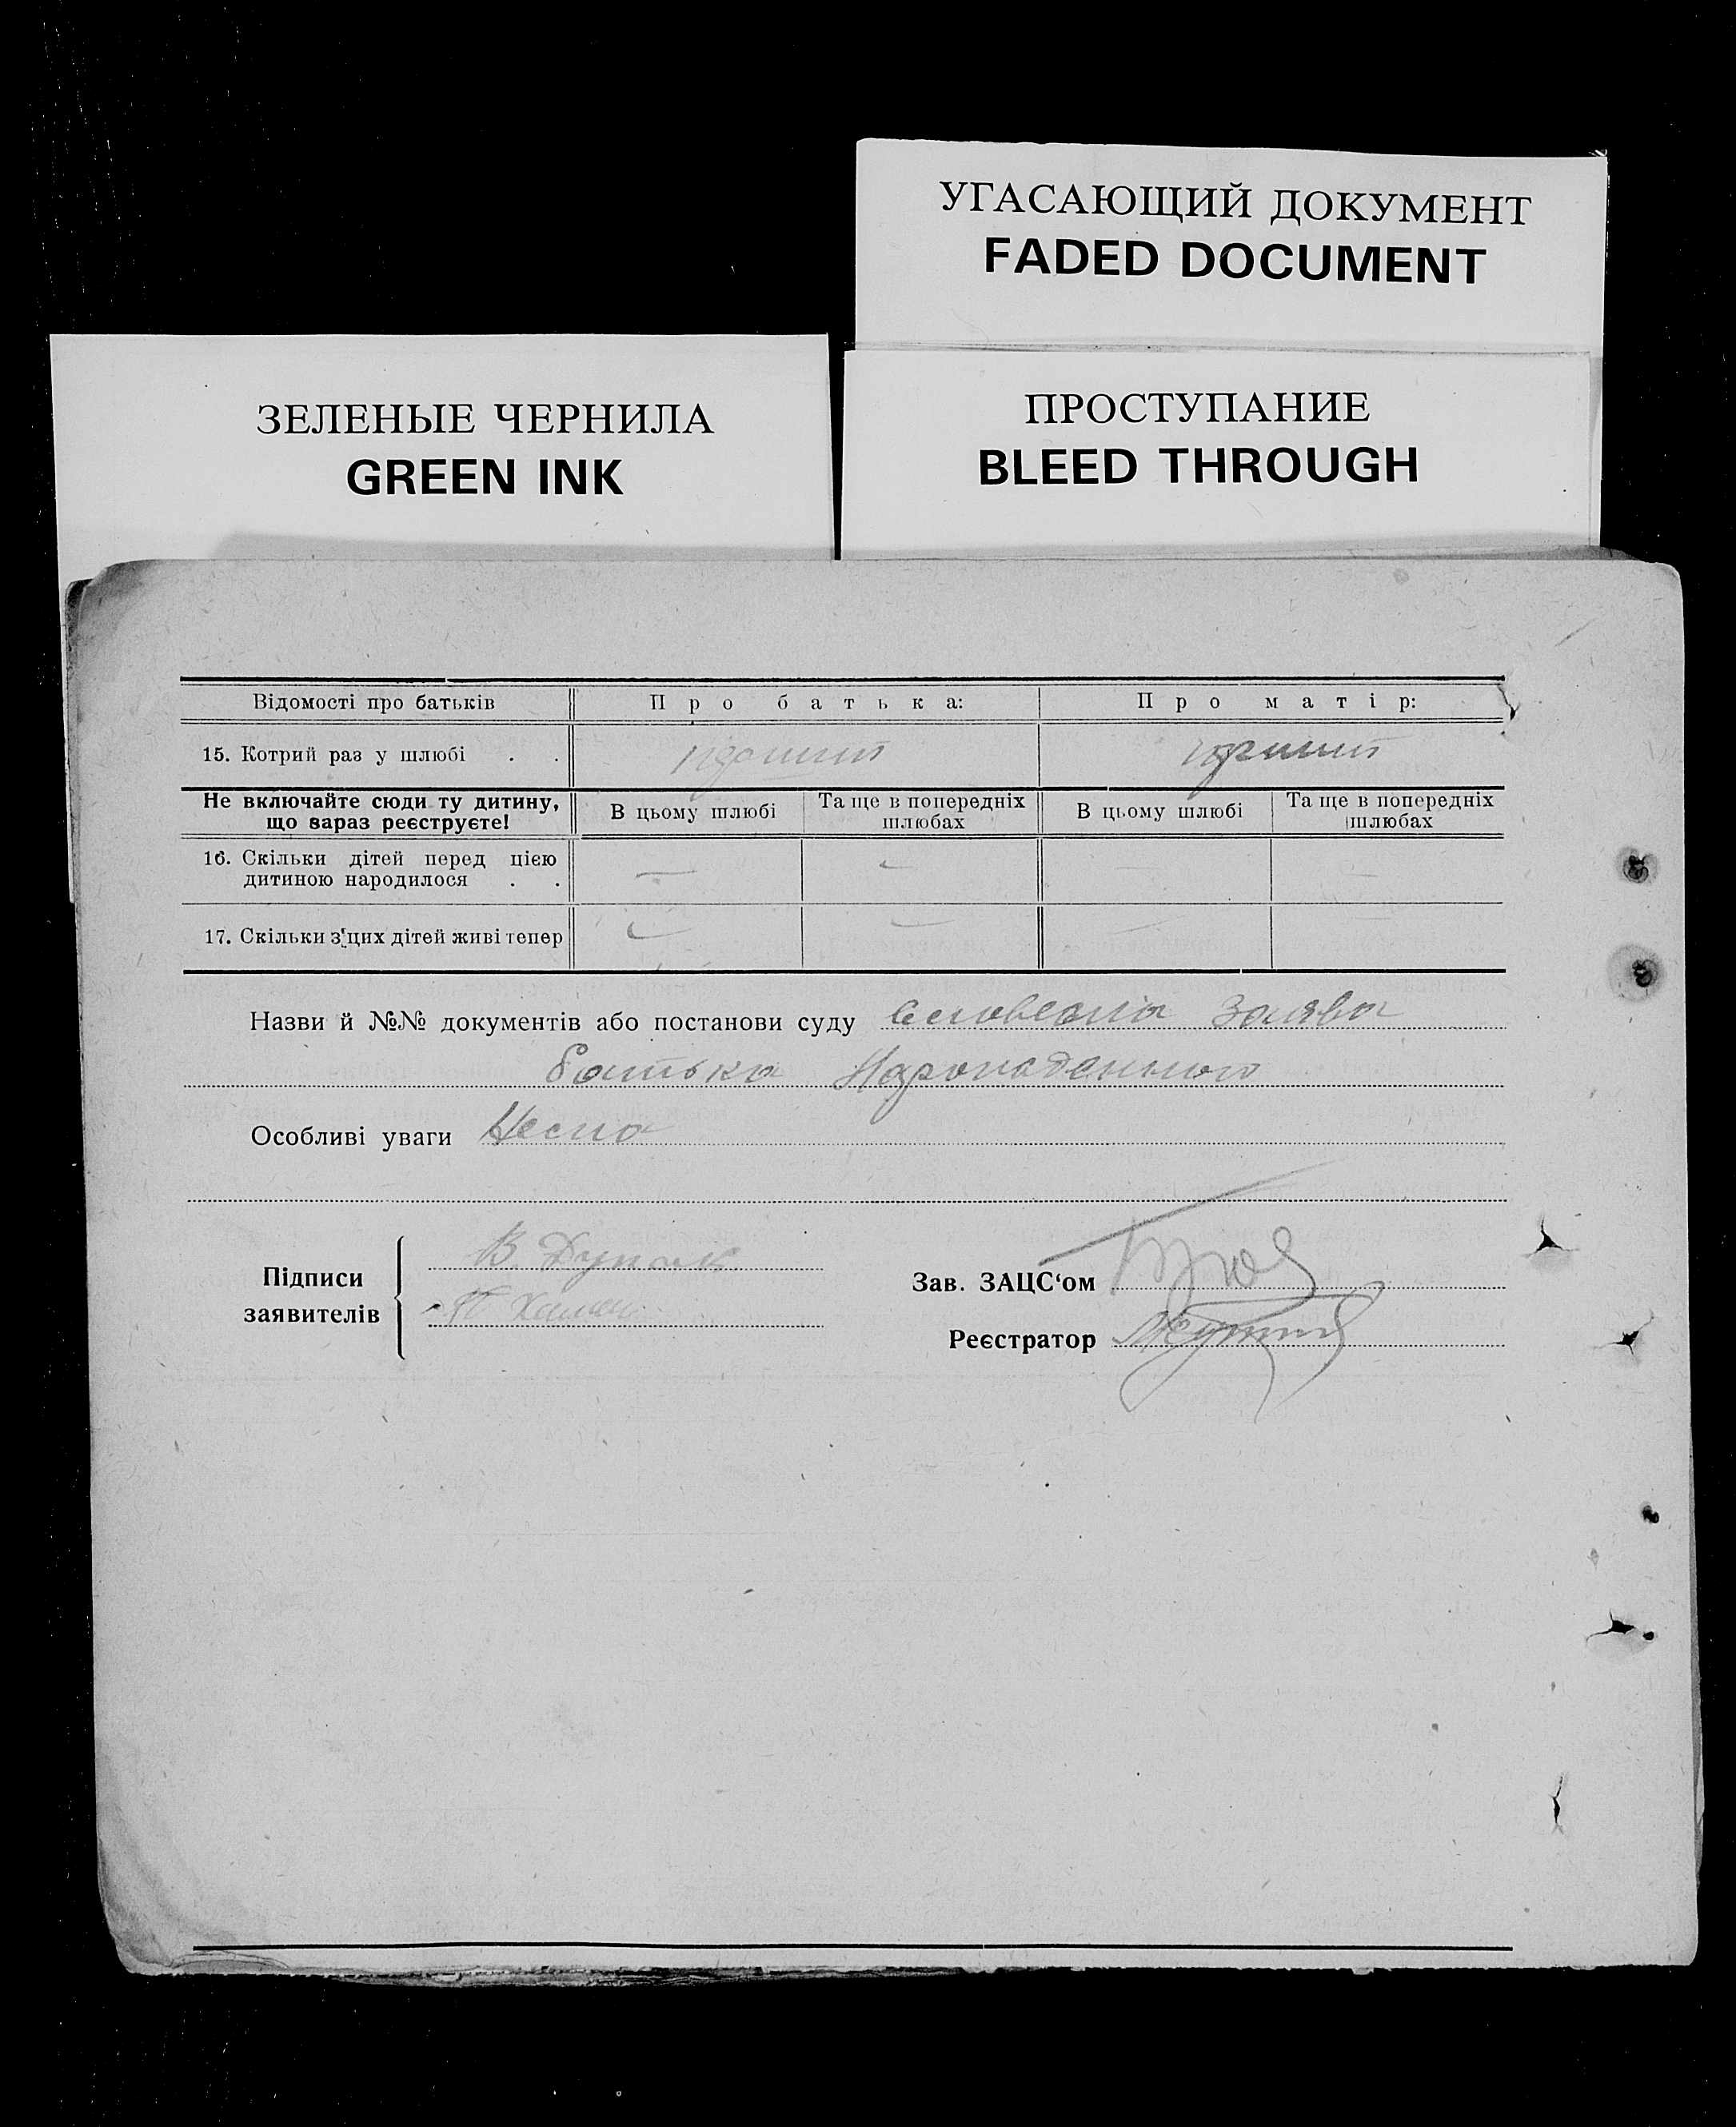 УГАСАЮЩИЙ ДОКУМЕНТ
FADED DOCUMENT
ЗЕЛЕНЫЕ ЧЕРНИЛА
GREEN INK
ПРОСТУПАНИЕ
BLEED THROUGH
Відомості про батьків Про батька: Про матір:
15. Котрий раз у шлюбі . .
Не включайте сюди ту дитину, що зараз реєструєте! В цьому шлюбі Та ще в попередніх шлюбах В цьому шлюбі Та ще в попередніх шлюбах
16. Скільки дітей перед цією
дитиною народилося . . — — — —
17. Скільки з цих дітей живі тепер — — —
Назви й №№ документів або постанови суду словесна заява
батька Народженного
Особливі уваги Нема
Підписи заявителів В. Дупак
Зав. ЗАЦС‘ом
Реєстратор